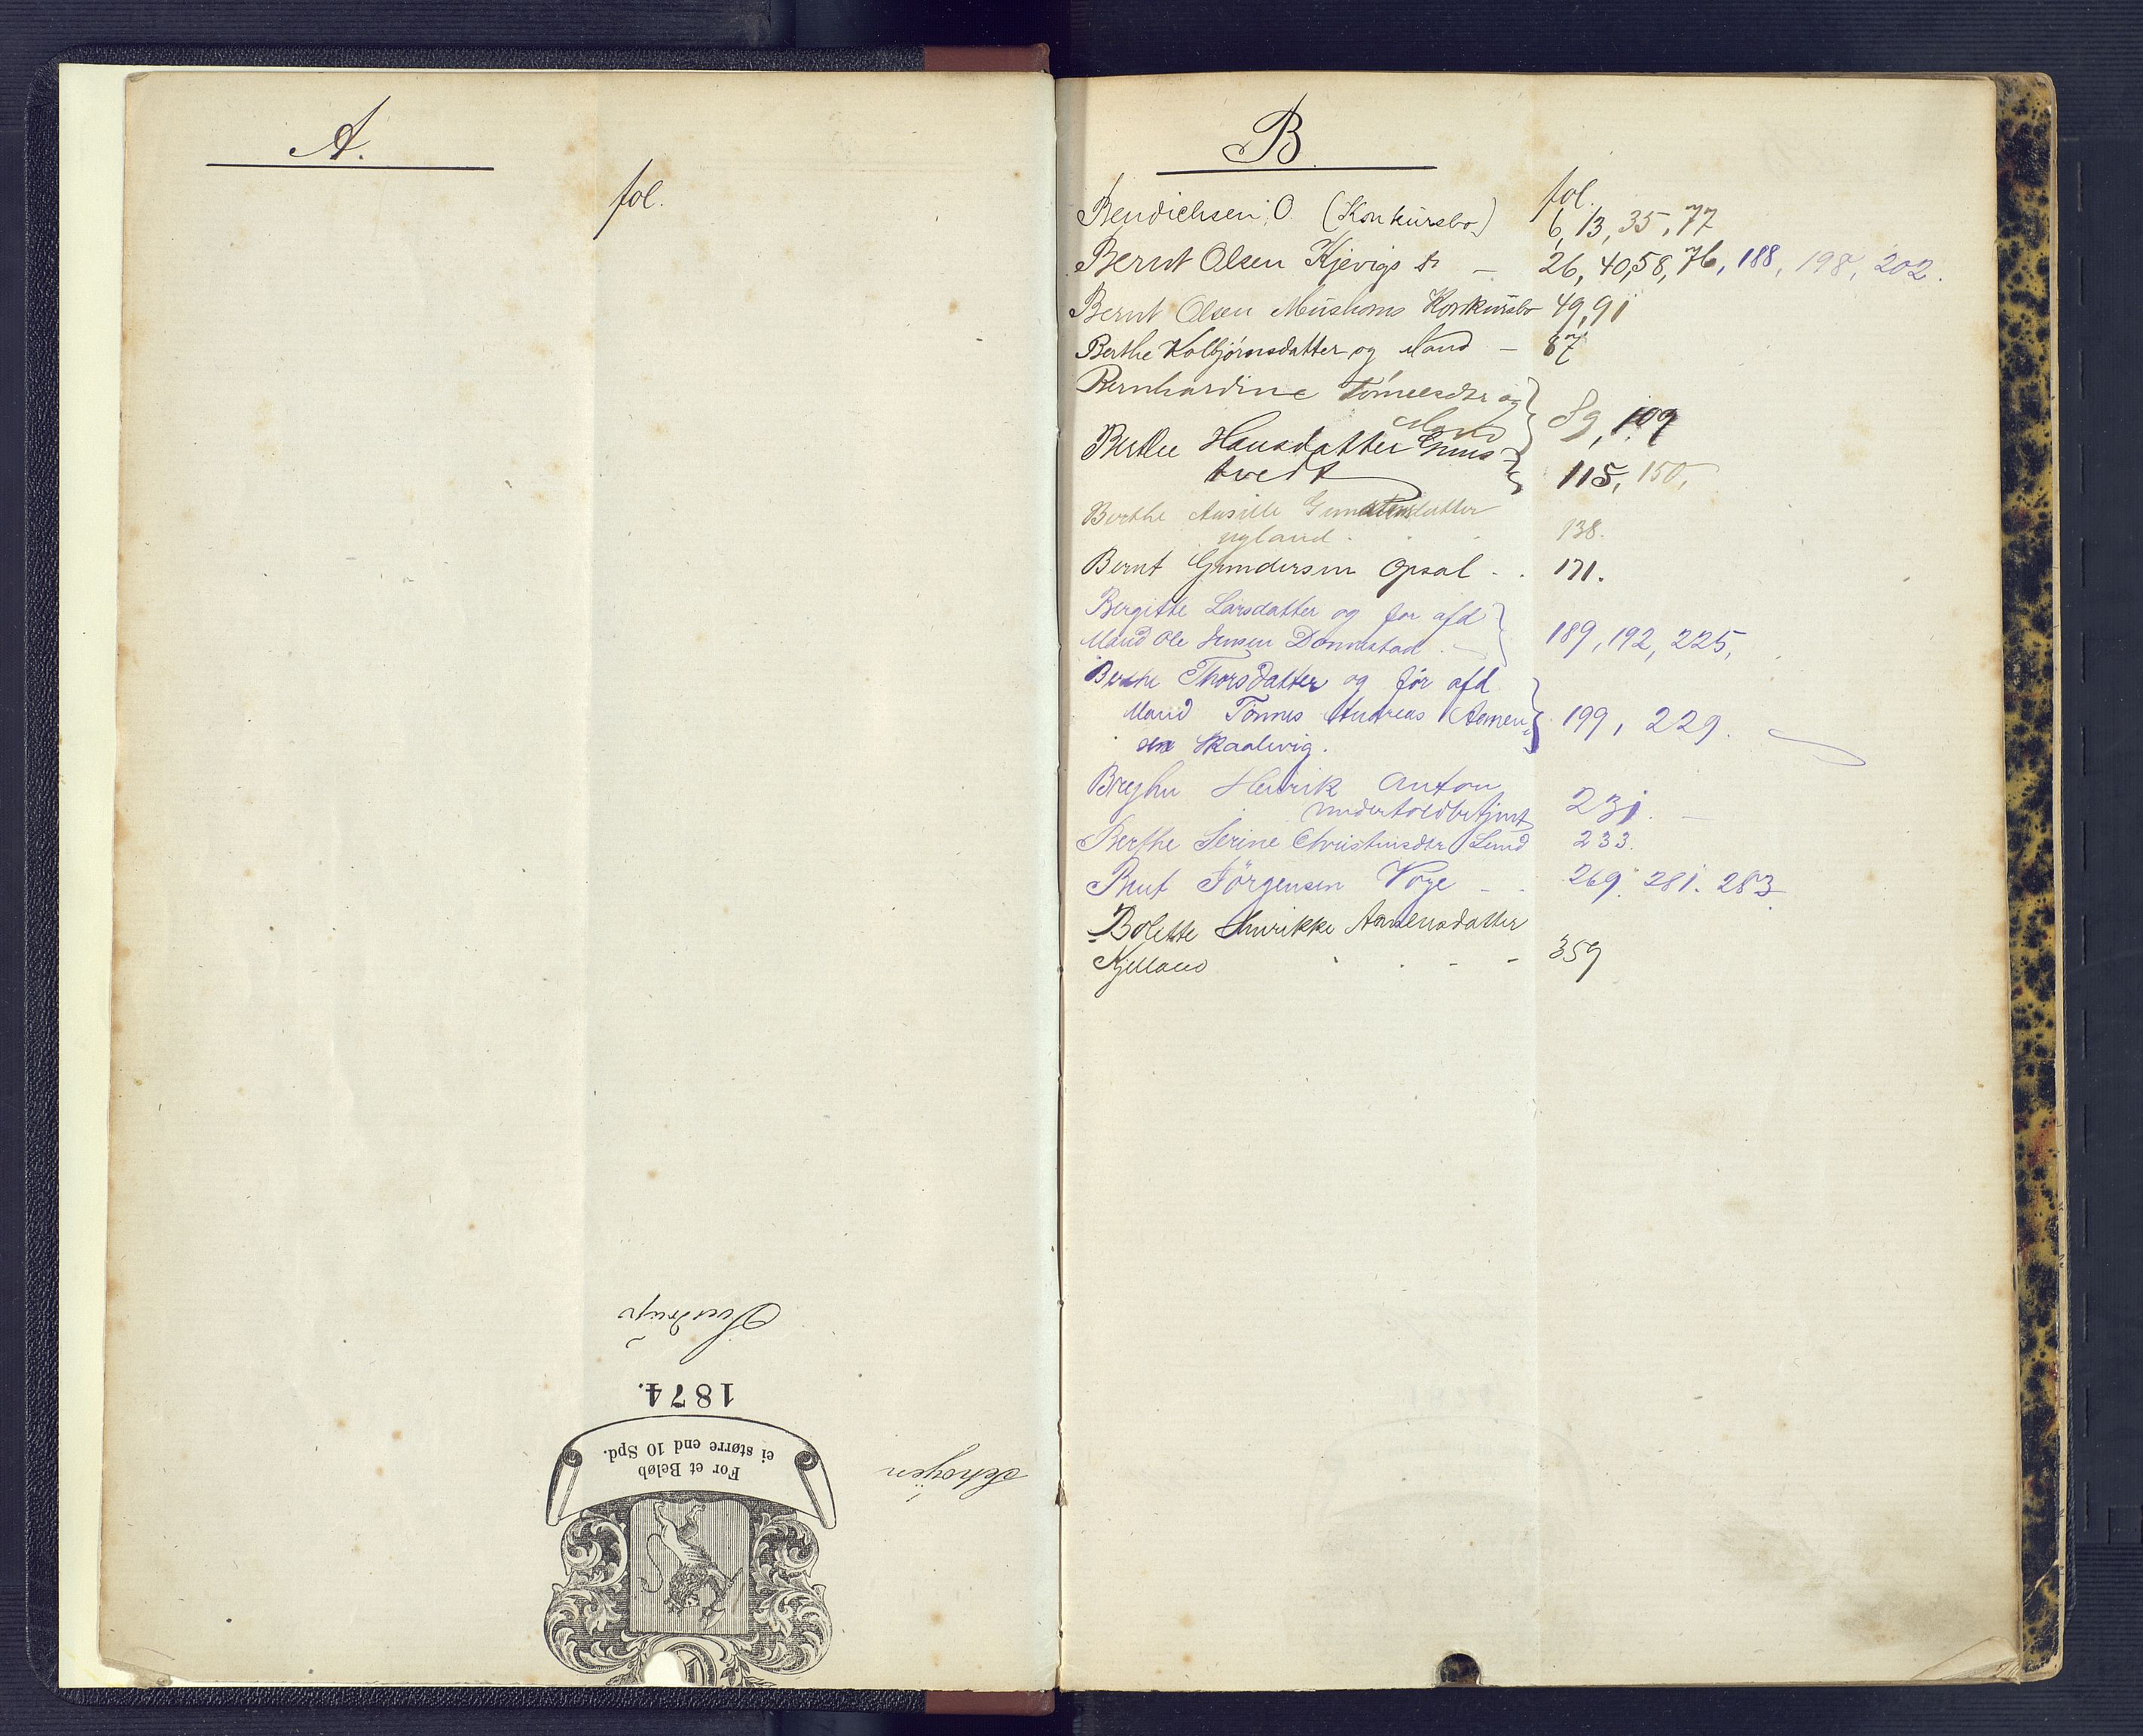 A.
fol.
Sverdrup
1874.
For et Beløb
ei større end 10 Spd.
B.
fol.
Bendichsen, O. (Konkursbo) 6, 13, 35, 77
Bernt Olsen Kjevigs do — 26, 40, 58, 76, 188, 198, 202.
Bernt Olsen Konkursbo 49, 91
Berthe Kolbjørnsdatter og Mand — 87
Bernhardine Tønnesdtr og
Mand 89, 109
Berthe Hansdatter Grims-
tvedt 115, 150,
Berthe
nyland. 138.
Bernt Gundersen Opsal . . 171.
Bergitte Larsdatter og før afd
Mand Ole Jensen Dønnestad . — 189, 192, 225,
Berthe Thorsdatter og før afd
Mand Tønnes Andreas Asmen
sen Skaalevig. 199, 229.
Henrik Anton
undertoldbetjent 231. —
Berthe Serine Christensdtr Lund 233.
Bent Jörgensen Voje — . 269. 281. 283.
Bolette Henrikke Asmensdatter
Kjelland . . - - 359